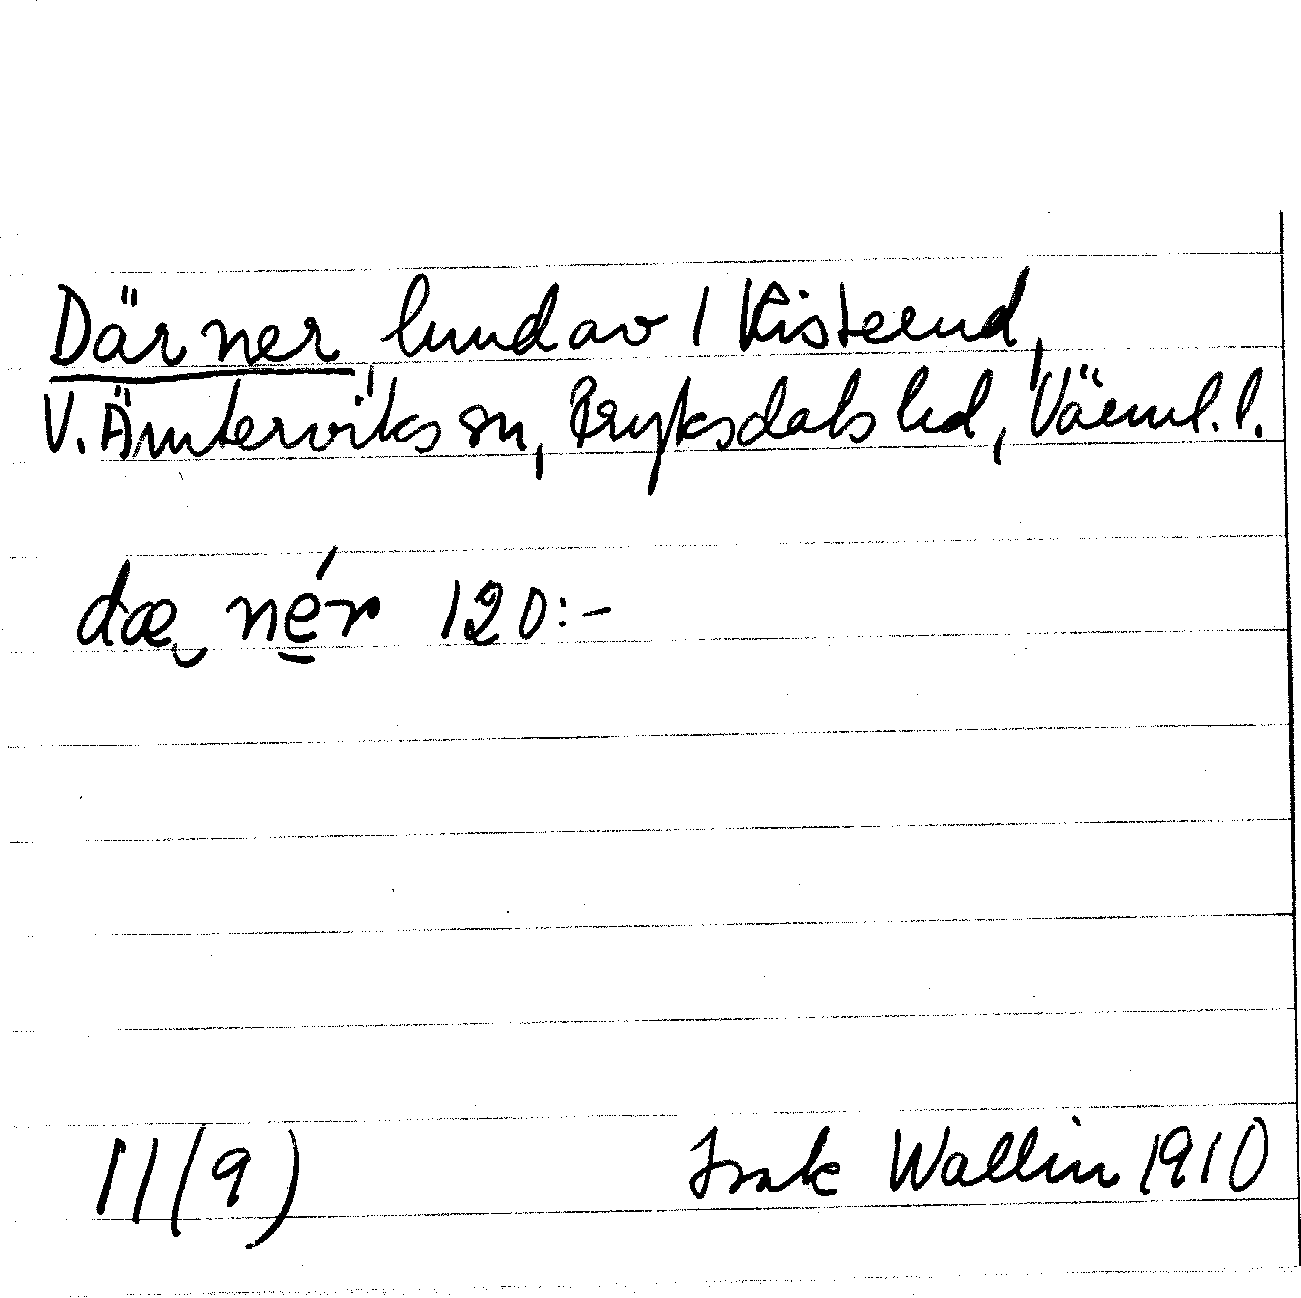 Därner hmd av 1 Risterud,
V. Ämterviks sn, Fryksdals hd, Värml. l.
dæ̮ nér 120:-
11(9) Isak Wallin 1910